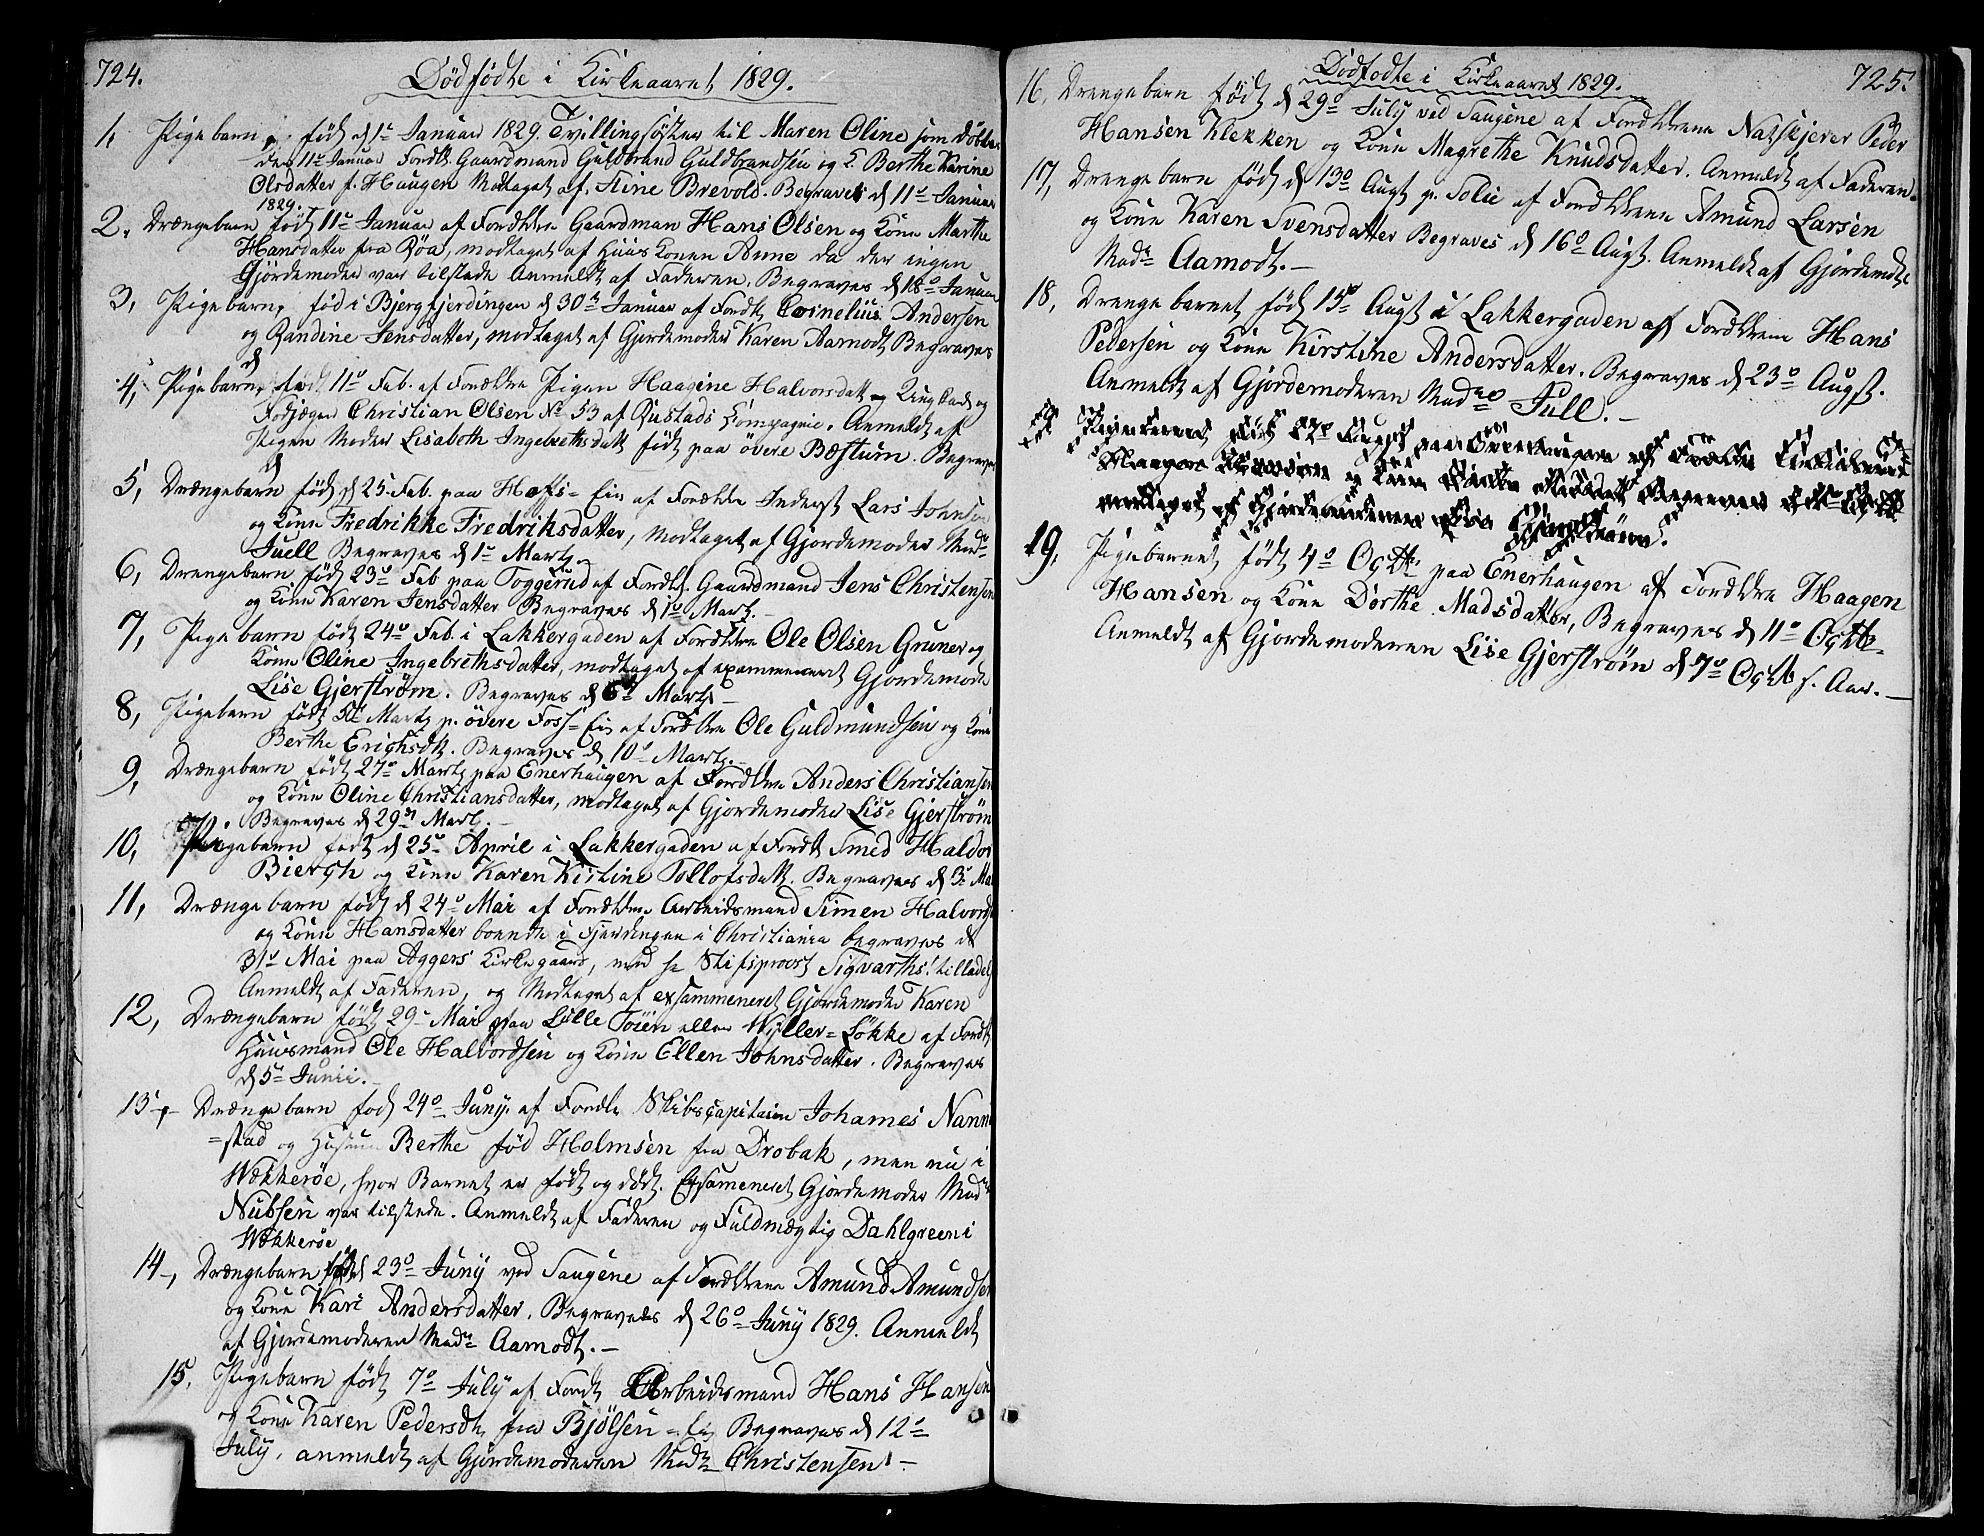 724.
Dödfödte i Kirkeaaret 1829.
1, Pigebarn, født d 1ste Januar 1829. Tvillingsöster til Maren Oline som döbtes
den 11te Januar Forældr. Gaardmand Guldbrand Guldbrandsen og K. Berthe Karine
Olsdatter f. Haugen Modtaget af Stine Brevold. Begravet d 11te Januar
1829.
2. Drængebarn født 11te Januar af Forældre Gaardman Hans Olsen og Kone Marthe
Hansdatter fra Röa, modtaget af Huus Konen Anne da der ingen
Gjördemoder var tilstede Anmeldt af Faderen. Begraves d 18de Januar
3, Pigebarn, fød i Bjergfjerdingen d 30te Januar af Fordl. Cornelius Andersen
og Randine Jensdatter, modtaget af Gjordemoder Karen Aamodt Begraves
d
4, Pigebarn, fød 11te Feb. af Forældre Pigen Haagine Halvorsdatt og Ungkarl og
Fodjæger Christian Olsen No 53 af Rustads Compagnie. Anmeldt af
Pigen Moder Lisabeth Ingebrethsdatt født paa övere Bæstum. Begraves
d
5, Drængebarn født d 25. Feb. paa Hofs-Eie af Forældre Inderst Lars Johnsen
og Kone Fredrikke Fredriksdatter, Modtaget af Gjordemoder Mad
Juell Begraves d 1te Martz.
6, Drengebarn född 23de Feb paa Toggerud af Fordl. Gaardmand Jens Christensen
og Kone Karen Jensdatter Begraves d 1te Martz.
7, Pige barn född 24de Feb. i Lakkergaden af Forældre Ole Olsen Gruner og
Kone Oline Ingebrethsdatter, modtaget af examineret Gjordemoder
Lise Gjerström. Begraves d 6te Martz.
8, Pigebarn född 5te Martz p. övere Foss-Eie af Forældre Ole Guldmundsen og Kone
Berthe Erichsdt. Begraves d 10de Martz.
9, Drængebarn född 27de Martz paa Enerhaugen af Forældre Anders Christiansen
og Kone Oline Christiansdatter, modtaget af Gjordemoder Lise Gjerström
Begraves d 29de Martz.
10, Pigebarn født d 25de April i Lakkergaden af Fordl Smed Haldor
Biergh og Kone Karen Kistine Tollofsdatt. Begraves d 3de Mai
11, Drænge barn född d 24de Mai af Forældre Arbeidsmand Simen Halvords
og Kone Hansdatter boende i Fjerdingen i Christiania begraves d
31te Mai paa Aggers Kirkegaard, med Hr Stiftsprovst Sigvarths tilladelse
Anmeldt af Faderen, og Modtaget af exsammeneret Gjordemoder Karen
12, Drængebarn född 29de Mai paa Lille Töien eller Wyller-Løkke af Fordl
Huusmand Ole Halvordsen og Kone Ellen Johnsdatter. Begraves
d 5te Junii.
13, Drænge barn født 24de Juny af Forældre Skibscapitain Johames Nanne
=stad og Hustrue Berthe fød Holmsen fra Drobak, men nu i
Wækkeröe, hvor Barnet er född og död. Exsameneret Gjordemoder Mad
Nubsen var tilstede. Anmeldt af Faderen og Fuldmægtig Dahlgreen i
Wækkeröe
14, Drængebarn født d 23de Juny ved Saugene af Forældrene Amund Amundsen
og Kone Kari Andersdatter. Begravedes d 26de Juny 1829. Anmeldt
af Gjordemoderen Madm Aamodt.
15. Pigebarn född 7de July af Fordl Arbeidsmand Hans Hansen
og Kone Karen Pedersdt, fra Bjölsen-Eie Begraves d 12te
July, anmeldt af Gjordemoderen Madm Christensen.
Dödfödte i Kirkeaaret 1829.
725.
16. Drengebarn född d 29de July ved Saugene af Forældrene Nazskjerer Peder
Hansen Klekken og Kone Magrethe Knudsdatter. Anmeldt af Faderen.
17, Drenge barn född d 13de Augt p. Solie af Forældrene Amund Larsen
og Kone Karen Svensdatter Begraves d 16de Augt. Anmeldt af Gjordemodr
Madm Aamodt.
18, Drenge barnet född 15de Augt i Lakkergaden af Forældrene Hans
Pedersen og Kone Kirstine Andersdatter. Begraves d 23de Augt.
Anmeldt af Gjordemoderen Madme Jull.
19. Pigebarnet född 4de Octbr paa Enerhaugen af Forældre Haagen
Hansen og Kone Dorthe Madsdatter, Begraves d 11te Octbr.
Anmeldt af Gjordemoderen Lise Gjerström d 7de Octb f. Aar.